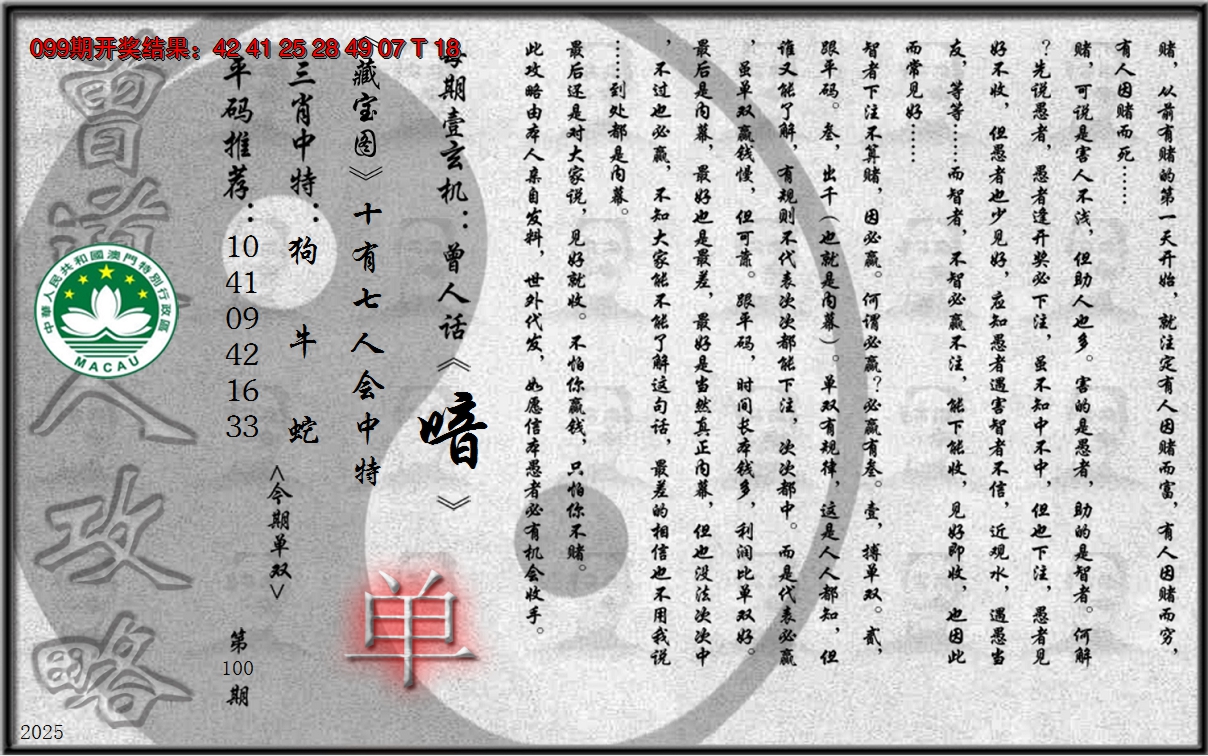 099期开奖结果：42 41 25 28 49 07 T 18
赌，从前有赌的第一天开始，就注定有人因赌而富，有人因赌而穷，
有人因赌而死……
赌，可说是害人不浅，但助人也多。害的是愚者，助的是智者。何解
？先说愚者，愚者逢开奖必下注，虽不知中不中，但也下注，愚者见
好不收，但愚者也少见好，应知愚者遇害智者不信，近观水，遇愚当
友，等等……而智者，不智必赢不注，能下能收，见好即收，也因此
而常见好……
智者下注不算赌，因必赢。何谓必赢？必赢有叁。壹，搏单双。贰，
跟平码。叁，出千（也就是内幕）。单双有规律，这是人人都知，但
谁又能了解，有规则不代表次次都能下注，次次都中。而是代表必赢
，虽单双赢钱慢，但可靠。跟平码，时间长本钱多，利润比单双好。
最后是内幕，最好也是最差，最好是当然真正内幕，但也没法次次中
，不过也必赢，不知大家能不能了解这句话，最差的相信也不用我说
……到处都是内幕。
最后还是对大家说，见好就收。不怕你赢钱，只怕你不赌。
此攻略由本人亲自发料，世外代发，如愿信本愚者必有机会收手。
每期壹玄机：曾人话《暗》
《藏宝图》十有七人会中特
三肖中特：狗 牛 蛇
<今期单双>
单
平码推荐：10 41 09 42 16 33
第100期
曾道人攻略
中華人民共和國澳門特別行政區
MACAU
2025